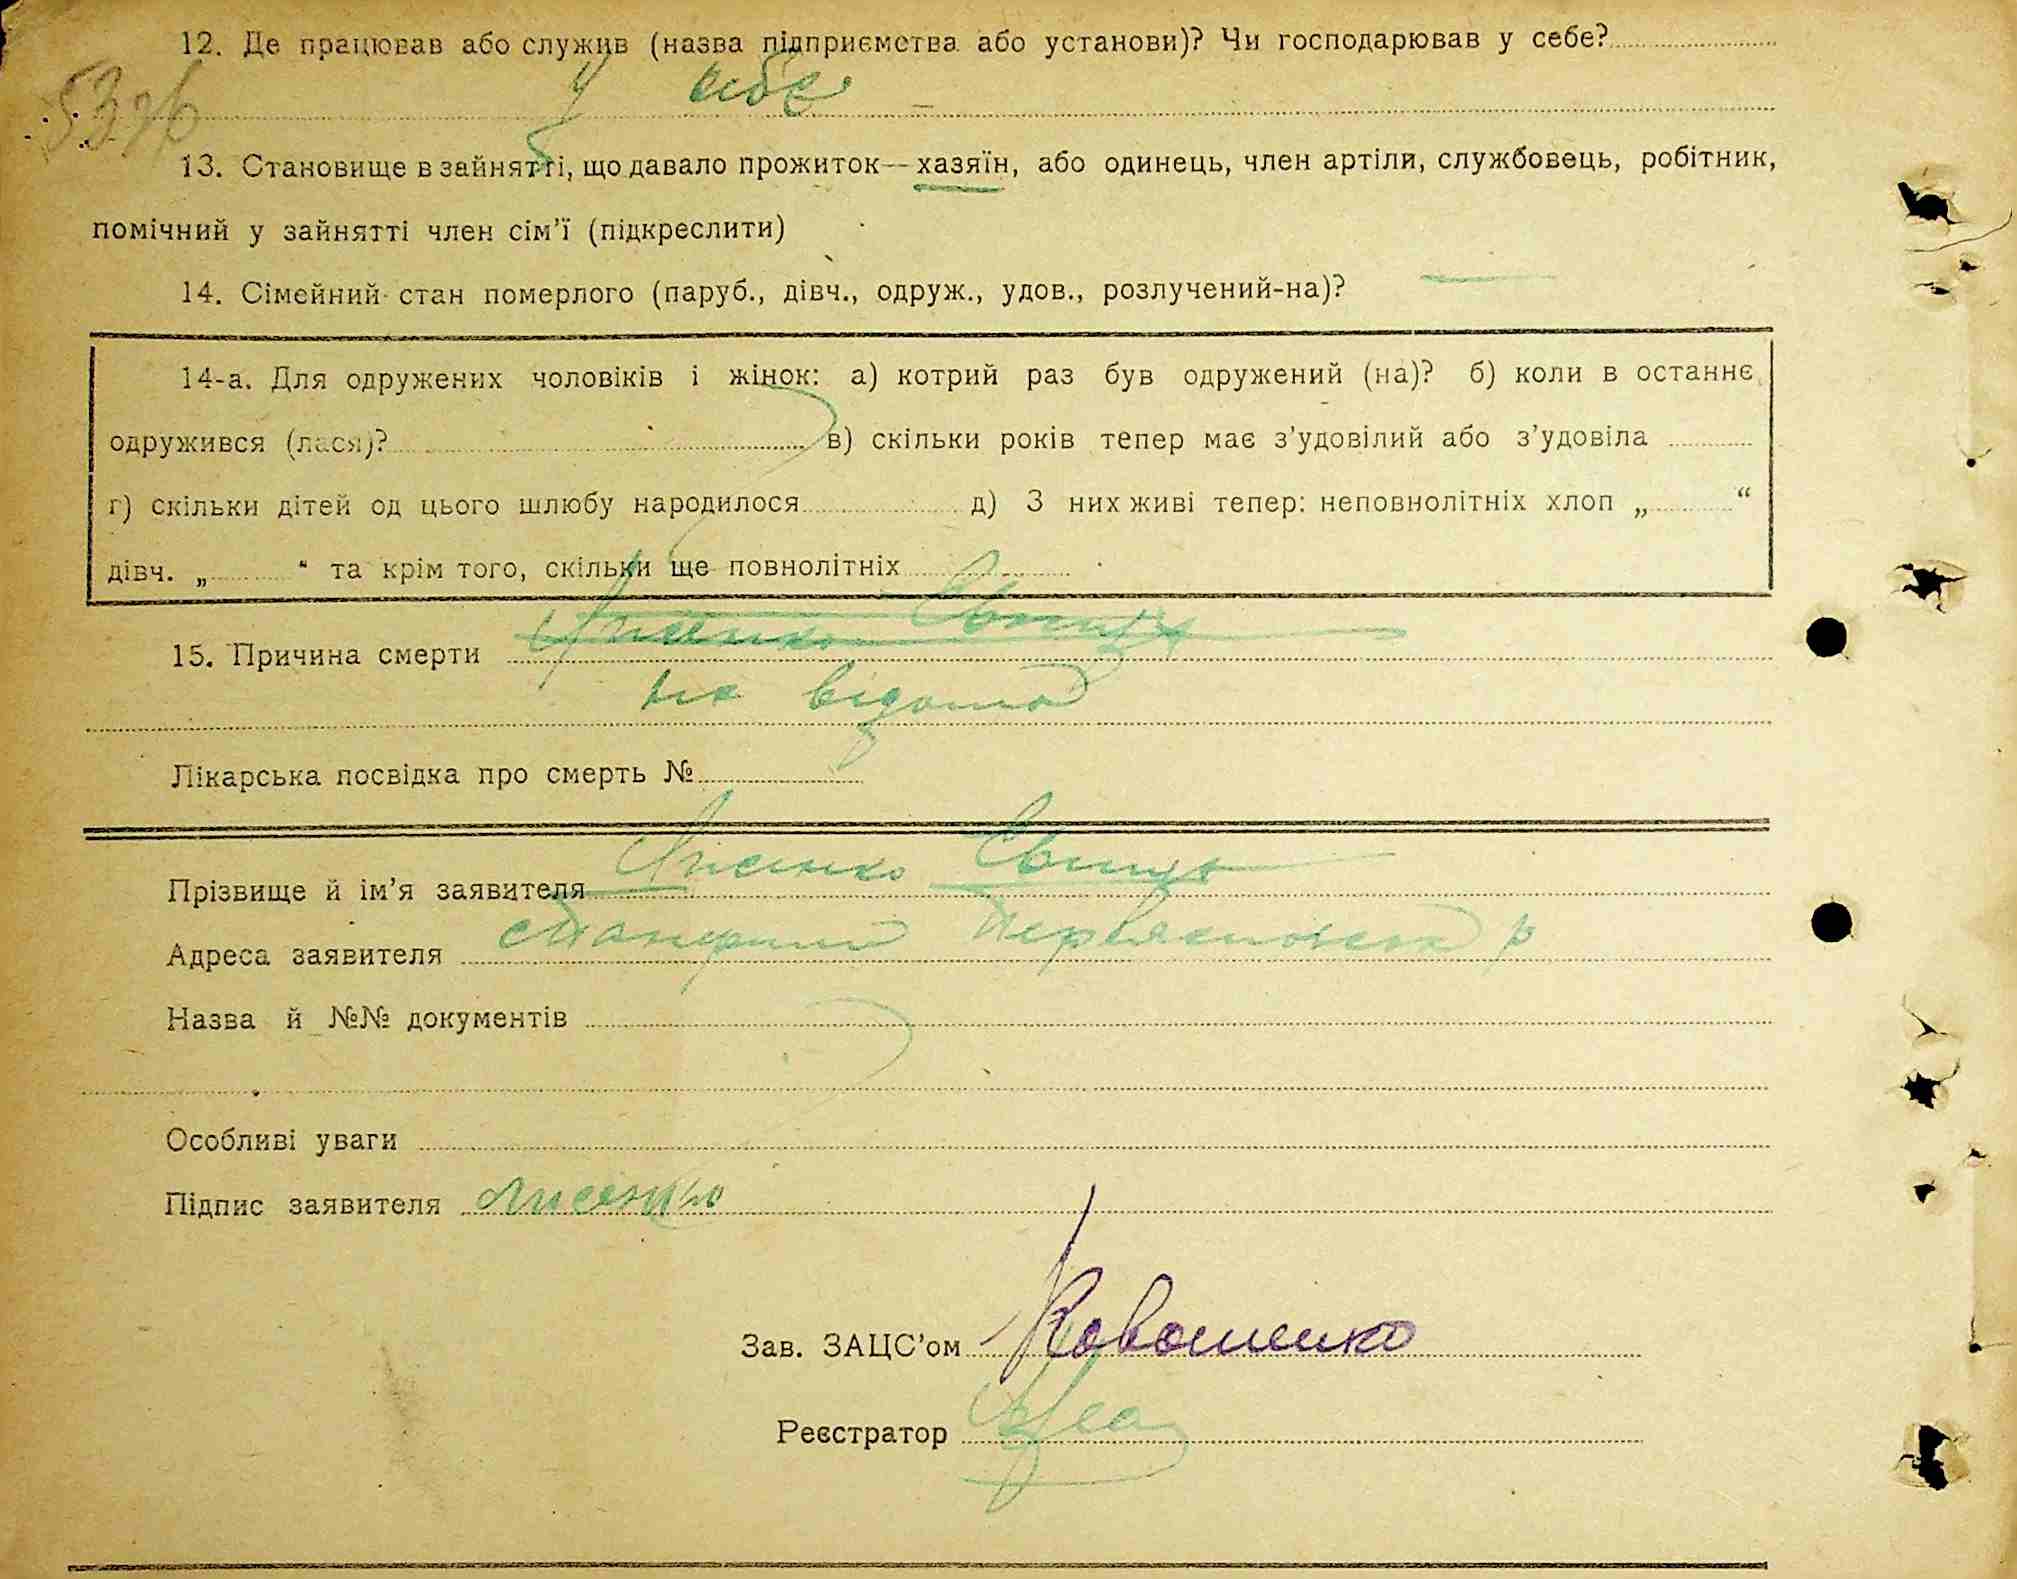 12. Де працював або служив (назва підприємства або установи)? Чи господарював у себе?
у себе
13. Становище в зайнятті, що давало прожиток—хазяїн, або одинець, член артіли, службовець, робітник,
помічний у зайнятті член сім’ї (підкреслити)
14. Сімейний стан померлого (паруб., дівч., одруж., удов., розлучений-на)? —
14-а. Для одружених чоловіків і жінок: а) котрий раз був одружений (на)? б) коли в останнє
одружився (лася)? в) скільки років тепер має з’удовілий або з’удовіла
г) скільки дітей од цього шлюбу народилося д) З них живі тепер: неповнолітніх хлоп „ “
дівч. „ “ та крім того, скільки ще повнолітніх
15. Причина смерти Лисенко
не відома
Лікарська посвідка про смерть №
Прізвище й ім’я заявителя Лисенко
Адреса заявителя
Назва й №№ документів
Особливі уваги
Підпис заявителя Лисенко
Зав. ЗАЦС’ом
Реєстратор